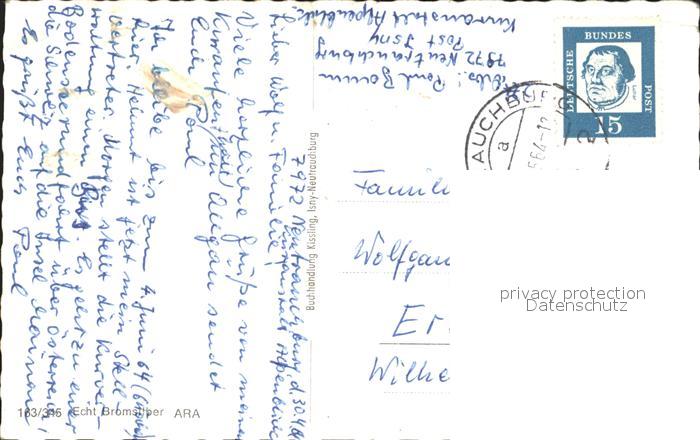 Abs.: Paul
7972 Neutrauchburg
Post Isny
Kuranstalt Alpenblick
DEUTSCHE BUNDES POST
Luther
15
AUCHBURG
a
7972 Neutrauchburg, d. 30.4.64
Kuranstalt Alpenblick
Lieber Wolfg. u. Familie
Viele herzliche Grüße von meinem
Kuraufenthalt im Allgäu sendet
Euch Paul
Ich bleibe bis zum 4. Juni 64
Hier, Helmut ist jetzt mein Stell-
vertreter. Morgen stellt die Kurver-
waltung einen Bus. Es geht zu einer
Bodenseerundfahrt über Österreich,
die Schweiz auf die Insel Mainau.
Es grüßt Euch Paul
Buchhandlung Kissling, Isny-Neutrauchburg
Famili
Wolfgan
Er
Wilhe
privacy protection
Datenschutz
163/345 Echt Bromsilber ARA